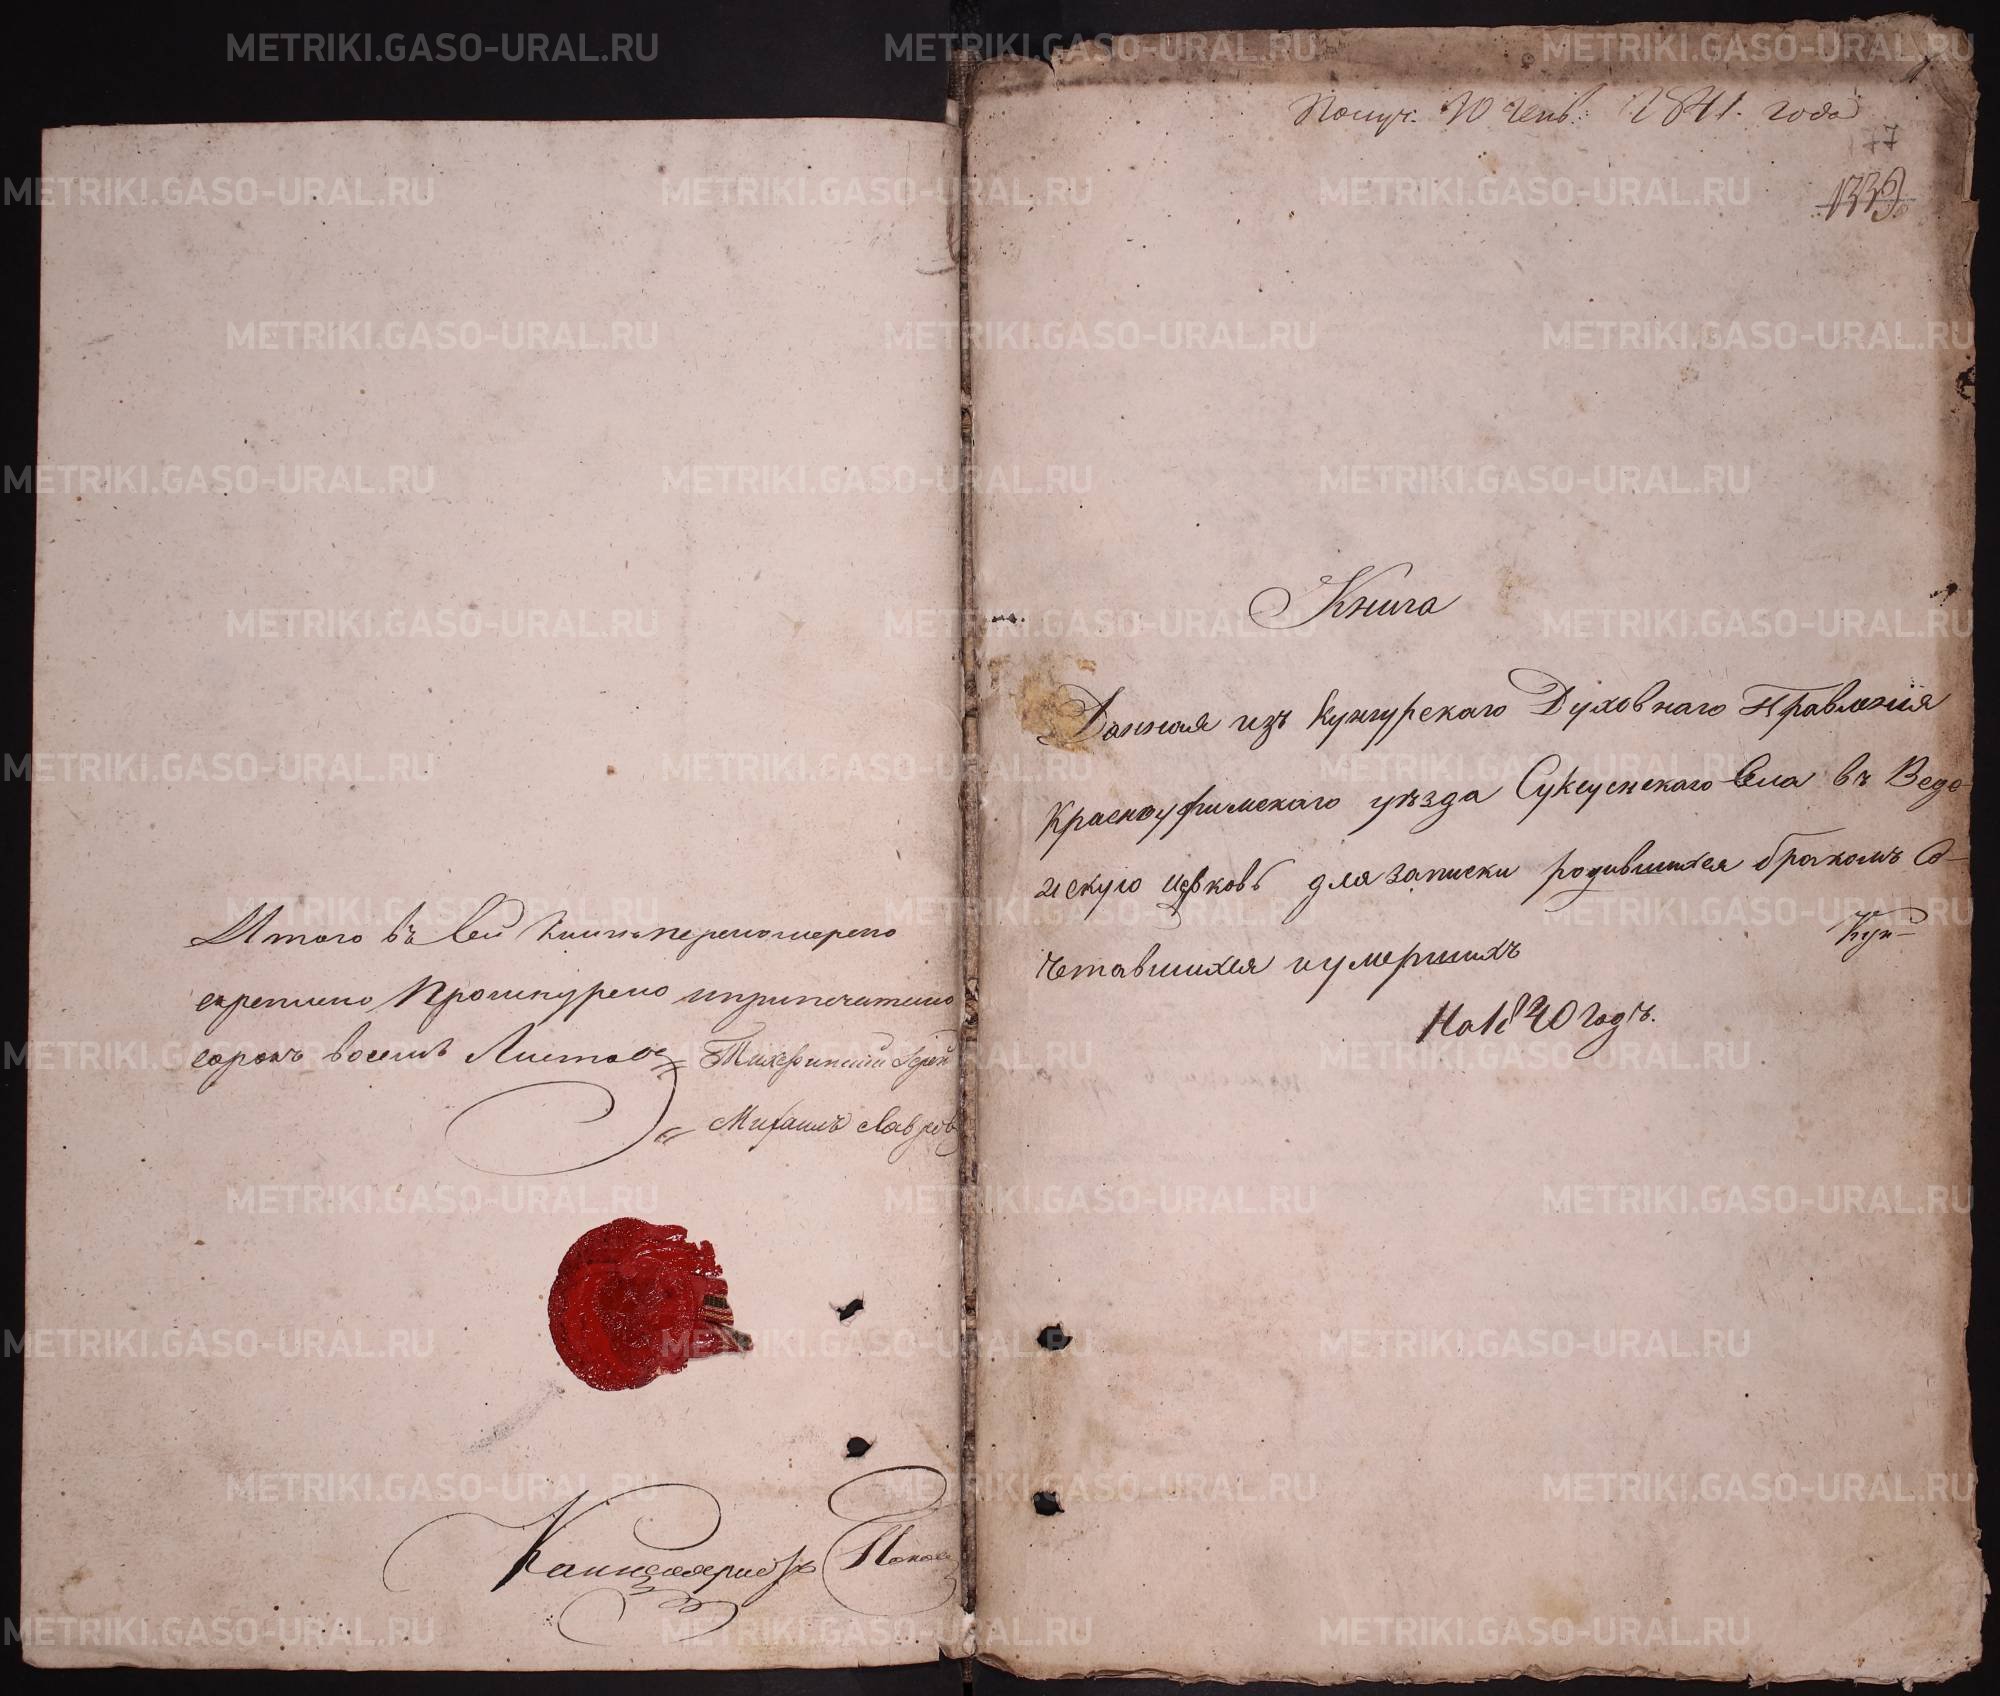 Итого въ сей книгѣ перенумерено
скреплено прошнурено и припечатано
сорокъ восемь листовъ Тихвинский Иерей
Михаилъ Лавровъ
Канцеляристъ Попов
Получ. 10 генв. 1841. года
177
1339
Книга
Данная изъ Кунгурскаго Духовнаго Правления
Красноуфимскаго уѣзда Суксунскаго села въ Веде-
нскую церковь для записки родившихся бракомъ Со-
четавшихся и умершихъ
Кун-
На 1840 годъ.
METRIKI.GASO-URAL.RU